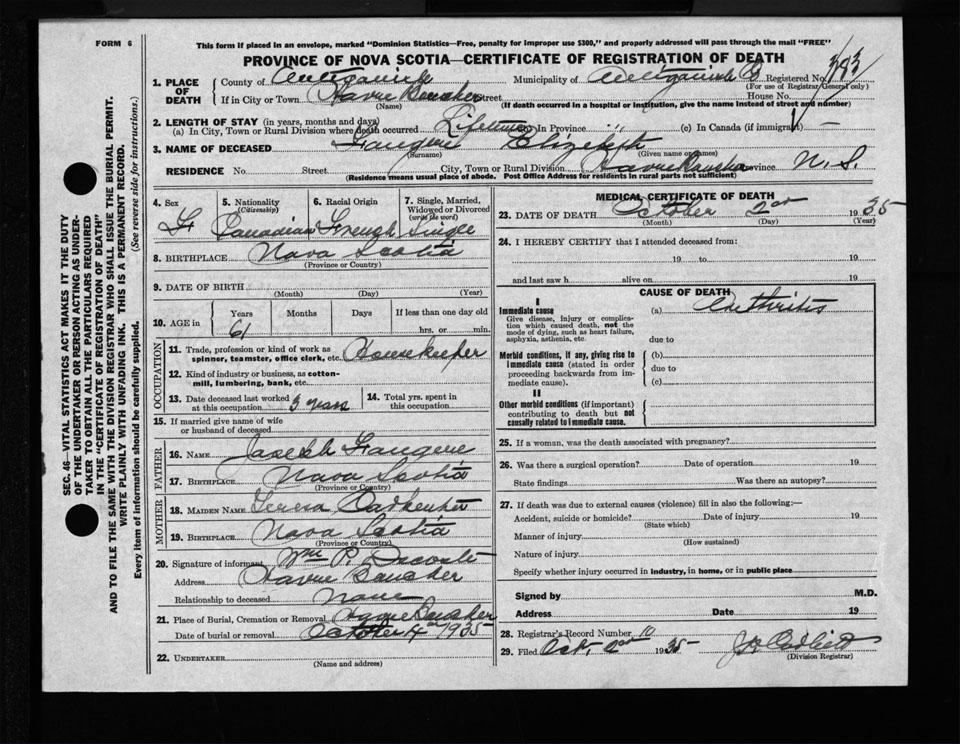 FORM 6
This form if placed in an envelope, marked "Dominion Statistics—Free, penalty for improper use $300," and properly addressed will pass through the mail "FREE"
PROVINCE OF NOVA SCOTIA—CERTIFICATE OF REGISTRATION OF DEATH
1. PLACE OF DEATH County of Antigonish Municipality of Antigonish Co Registered No. 383
(For use of Registrar General only)
If in City or Town Havre Boucher Street House No.
(Name) (If death occurred in a hospital or institution, give the name instead of street and number)
2. LENGTH OF STAY (in years, months and days)
(a) In City, Town or Rural Division where death occurred Lifetime (b) In Province " (c) In Canada (if immigrant) —
3. NAME OF DECEASED Elizabeth
(Surname) (Given name or names)
RESIDENCE No. Street City, Town or Rural Division Havre Boucher Province N. S.
(Residence means usual place of abode. Post Office Address for residents in rural parts not sufficient)
4. Sex F
5. Nationality (Citizenship) Canadian
6. Racial Origin French
7. Single, Married, Widowed or Divorced (write the word) Single
8. BIRTHPLACE Nova Scotia
(Province or Country)
9. DATE OF BIRTH
(Month) (Day) (Year)
10. AGE in Years 61 Months Days If less than one day old
hrs. or min.
OCCUPATION
11. Trade, profession or kind of work as spinner, teamster, office clerk, etc. Housekeeper
12. Kind of industry or business, as cotton-mill, lumbering, bank, etc.
13. Date deceased last worked at this occupation 3 years
14. Total yrs. spent in this occupation
15. If married give name of wife or husband of deceased
FATHER
16. NAME Joseph
17. BIRTHPLACE Nova Scotia
(Province or Country)
MOTHER
18. MAIDEN NAME Teresa
19. BIRTHPLACE Nova Scotia
(Province or Country)
20. Signature of informant Wm P. Decoste
Address Havre Boucher
Relationship to deceased None
21. Place of Burial, Cremation or Removal Havre Boucher
Date of burial or removal October 4 1935
22. UNDERTAKER
(Name and address)
MEDICAL CERTIFICATE OF DEATH
23. DATE OF DEATH October 2nd 1935
(Month) (Day) (Year)
24. I HEREBY CERTIFY that I attended deceased from:
19 to 19
and last saw h alive on 19
CAUSE OF DEATH
I
Immediate cause
Give disease, injury or complication which caused death, not the mode of dying, such as heart failure, asphyxia, asthenia, etc.
(a) Arthritis
due to
Morbid conditions, if any, giving rise to immediate cause (stated in order proceeding backwards from immediate cause).
(b)
due to
(c)
II
Other morbid conditions (if important) contributing to death but not causally related to immediate cause.
25. If a woman, was the death associated with pregnancy?
26. Was there a surgical operation? Date of operation 19
State findings Was there an autopsy?
27. If death was due to external causes (violence) fill in also the following:—
Accident, suicide or homicide? Date of injury 19
(State which)
Manner of injury
(How sustained)
Nature of injury
Specify whether injury occurred in industry, in home, or in public place
Signed by M.D.
Address Date 19
28. Registrar's Record Number 10
29. Filed Oct. 2nd 1935
(Division Registrar)
SEC. 46—VITAL STATISTICS ACT MAKES IT THE DUTY
OF THE UNDERTAKER OR PERSON ACTING AS UNDER-
TAKER TO OBTAIN ALL THE PARTICULARS REQUIRED
IN THE "CERTIFICATE OF REGISTRATION OF DEATH"
AND TO FILE THE SAME WITH THE DIVISION REGISTRAR WHO SHALL ISSUE THE BURIAL PERMIT.
WRITE PLAINLY WITH UNFADING INK. THIS IS A PERMANENT RECORD.
Every item of information should be carefully supplied. (See reverse side for instructions.)